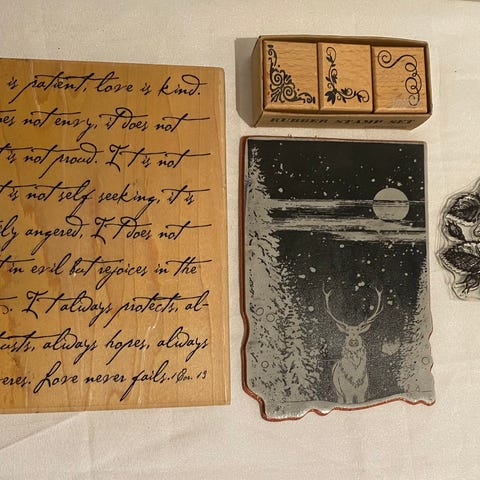 is patient, love is kind.
oes not envy, it does not
t is not proud. It is not
t is not self seeking, it is
ly angered, It does not
t in evil but rejoices in the
It always protects, al-
usts, always hopes, always
eres. Love never fails. 1 Cor. 13
RUBBER STAMP SET